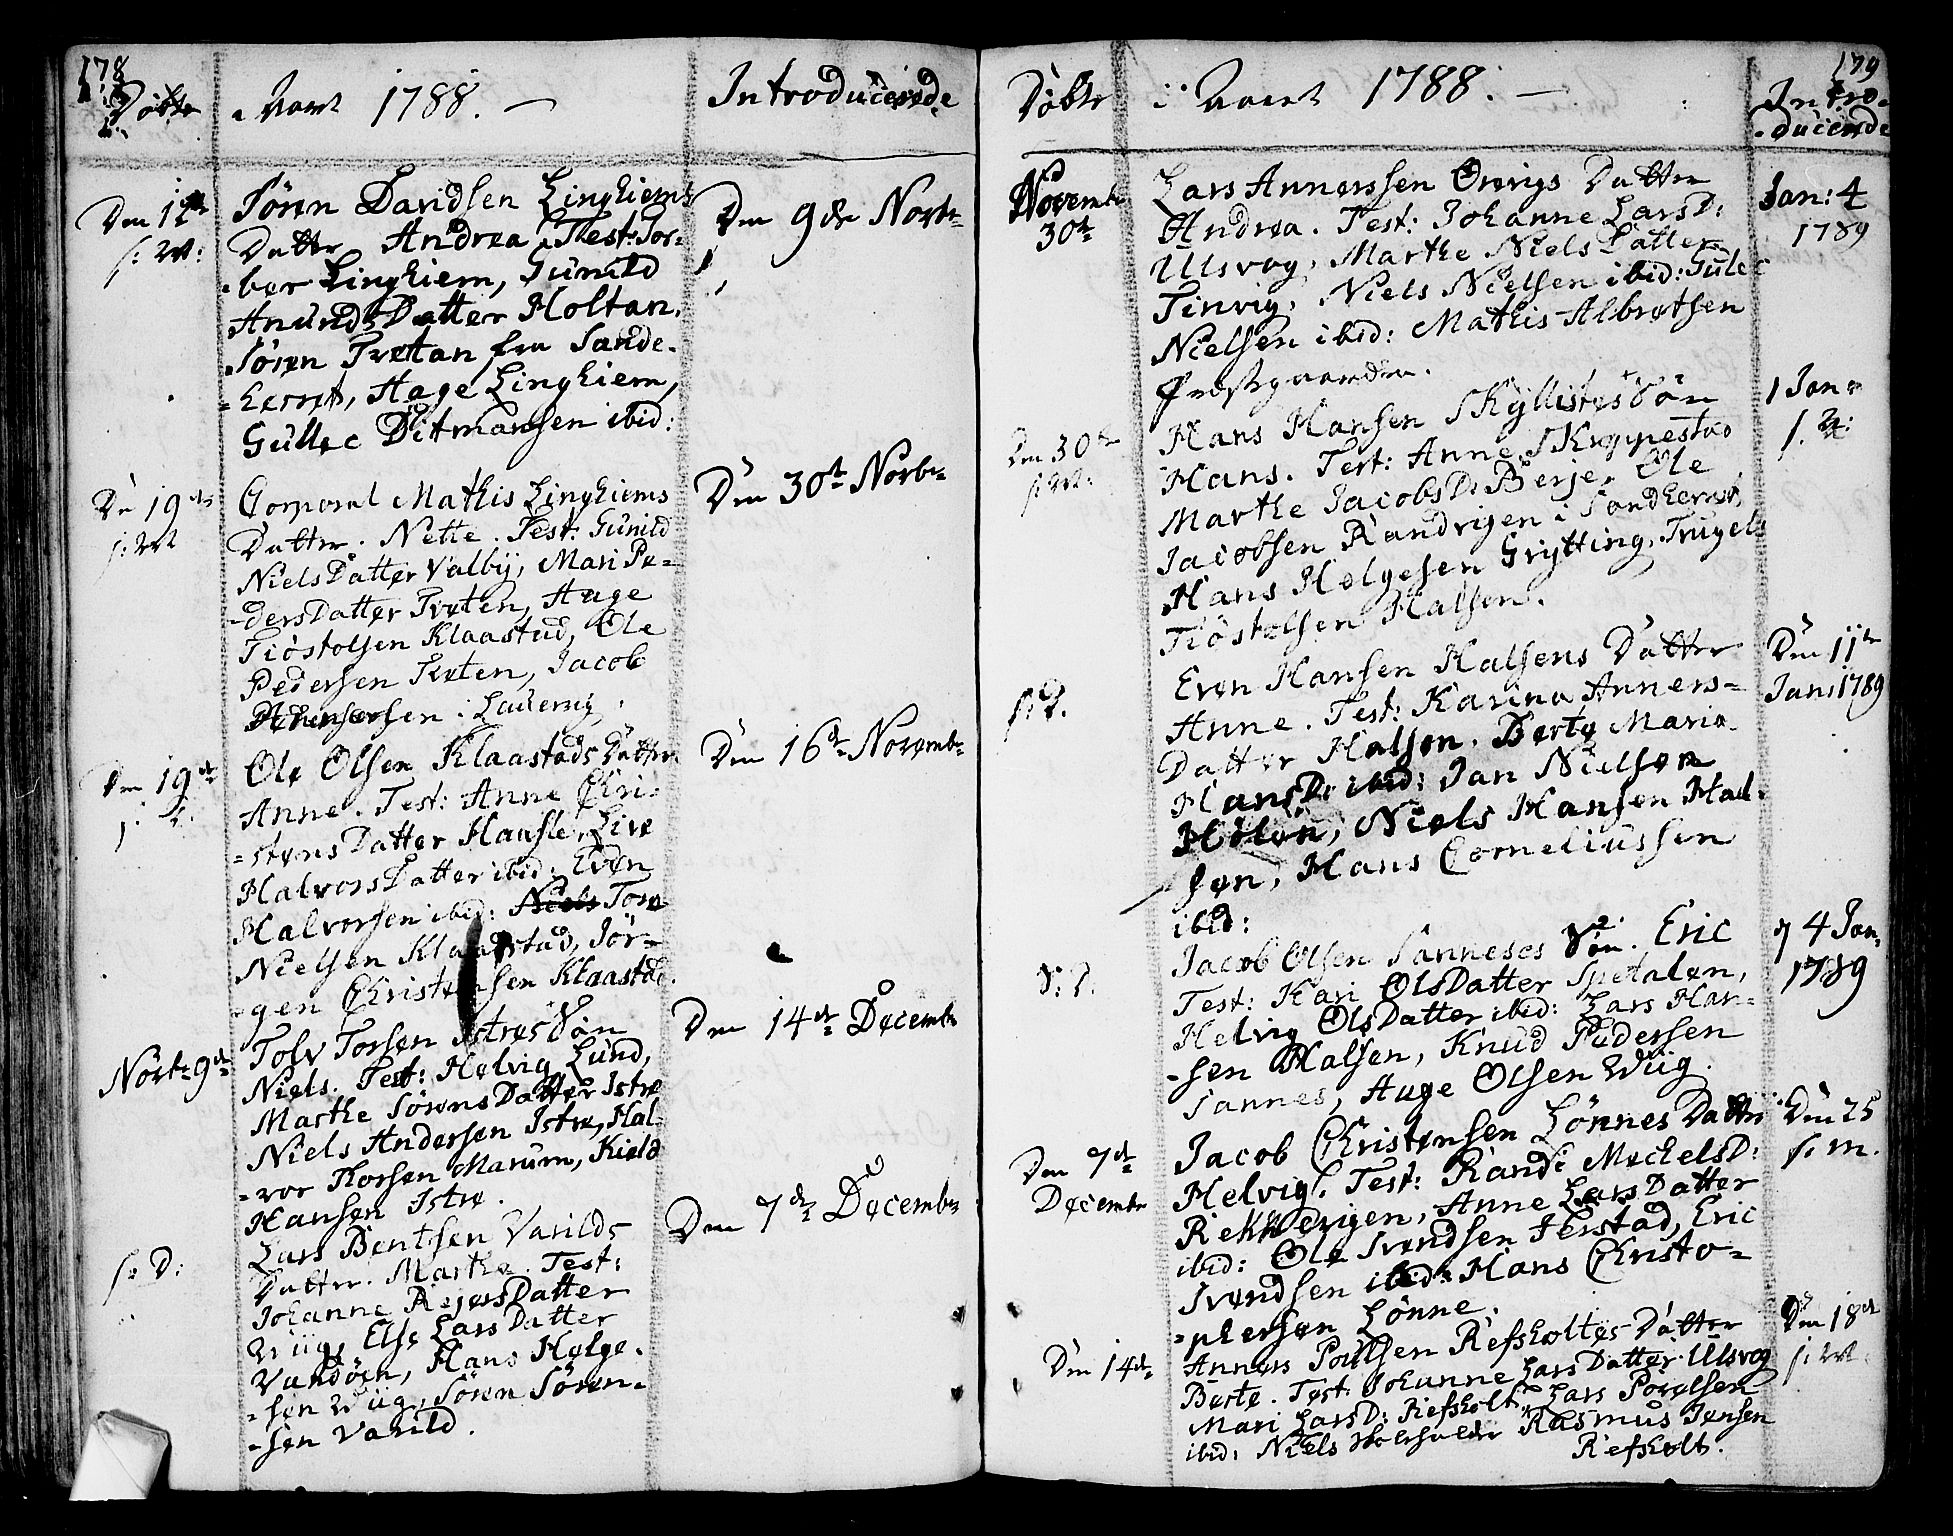 178
Døbte
i Aaret 1788. —
Introducerede
Den 12te
s: M:
Søren Davidsen Linghiems
Datter Andrea. Test: Tor-
-bor Linghiem, Gunild
Anunds Datter Holtan,
Søren Trøtan fra Sande-
-herret, Hage Linghiem,
Gullec Ditmansen ibid:
Den 9de Novbr
De 19de
s: M:
Corporal Mathis Linghiems
Datter. Nette. Test: Gunild
Niels Datter Valby, Mari Pe-
-ders Datter Trøten, Hage
Tiøstolsen Klaastad, Ole
Pedersen Trøten, Jacob
Laüervig.
Den 30te Novbr
Den 19de
Ole Olsen Klaastads Datter
Anne. Test: Anne Chri-
-stens Datter Haüsle, Live
Halvors Datter ibid: Even
Halvorsen ibid: Niels Tore
Nielsen Klaastad, Jør-
-gen Christensen Klaastad.
Den 16de Novembr
Novbr 9de
Tolv Torsen Istres Søn
Niels. Test: Helvig Lund,
Marthe Sørens Datter Istre
Niels Andersen Istre, Hal-
-vor Thorsen Marum, Kield
Hansen Istre.
Den 14de Decembr
s: D:
Lars Bentsen Varilds
Datter. Marthe. Test:
Johanne Rejers Datter
Wiüg, Else Lars Datter
Vandöen, Hans Helge-
-sen Wiüg, Søren Søren-
-sen Varild.
Den 7de Decembr
179
Døbte
i Aaret 1788. —
Intro-
-ducerede
Novembr
30te
Lars Annerssen Ørevigs Datter
Andrea. Test: Johanne Lars D:
Ulsvog, Marthe Niels Datter
Tinvig, Niels Nielsen ibid: Gulec
Nielsen ibid: Mathis Albretsen
Præstegaarden.
Jan: 4
1789
Den 30te
s: M:
Hans Hansen Skyllistes Søn
Hans. Test: Anne Skeppestad
Marthe Jacobs D: Berje, Ole
Jacobsen Randvigen i Sandherret,
Hans Helgesen Grytting, Trugels
Tiøstolsen Halsen.
1 Jan:
s. A:
s: D.
Even Hansen Halsens Datter
Anne. Test: Karina Anners-
Datter Halsen. Berte Maria
Hans D: ibid: Jan Nielsen
Holen, Niels Hansen Hal-
sen, Hans Corneliussen
ibid:
Den 11te
Jan: 1789
S: D.
Jacob Olsen Sanneses Søn. Eric
Test: Kari Ols Datter Spetalen,
Helvig Ols Datter ibid: Lars Han-
-sen Halsen, Knud Pedersen
Sannes, Auge Olsen Wiig.
d 4 Jan:
1789
Den 7de
Decembr
Jacob Christensen Lønnes Datter
Helvig. Test: Randi Mechels D:
Rekkevigen, Anne Lars Datter
ibid: Ole Svendsen Ierstad, Eric
Svendsen ibid: Hans Christo-
-phersen Lönne.
Den 25
s: m.
Den 14de
Anners Poülsen Refsholtes Datter
Berte. Test: Johanne Lars Datter Ulsvog
Mari Lars D: Refsholt, Lars Povelsen
ibid: Niels Rasmus Jensen
Refsholt.
Den 18de
s: M: